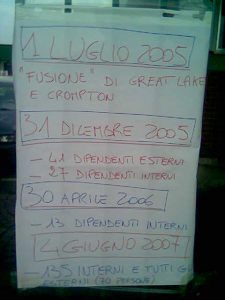 1 LUGLIO 2005
"FUSIONE" DI GREAT LAKE
E CROMPTON
31 DICEMBRE 2005
- 41 DIPENDENTI ESTERNI
- 27 DIPENDENTI INTERNI
30 APRILE 2006
- 13 DIPENDENTI INTERNI
4 GIUGNO 2007
- 135 INTERNI E TUTTI G
ESTERNI (70 PERSONE)